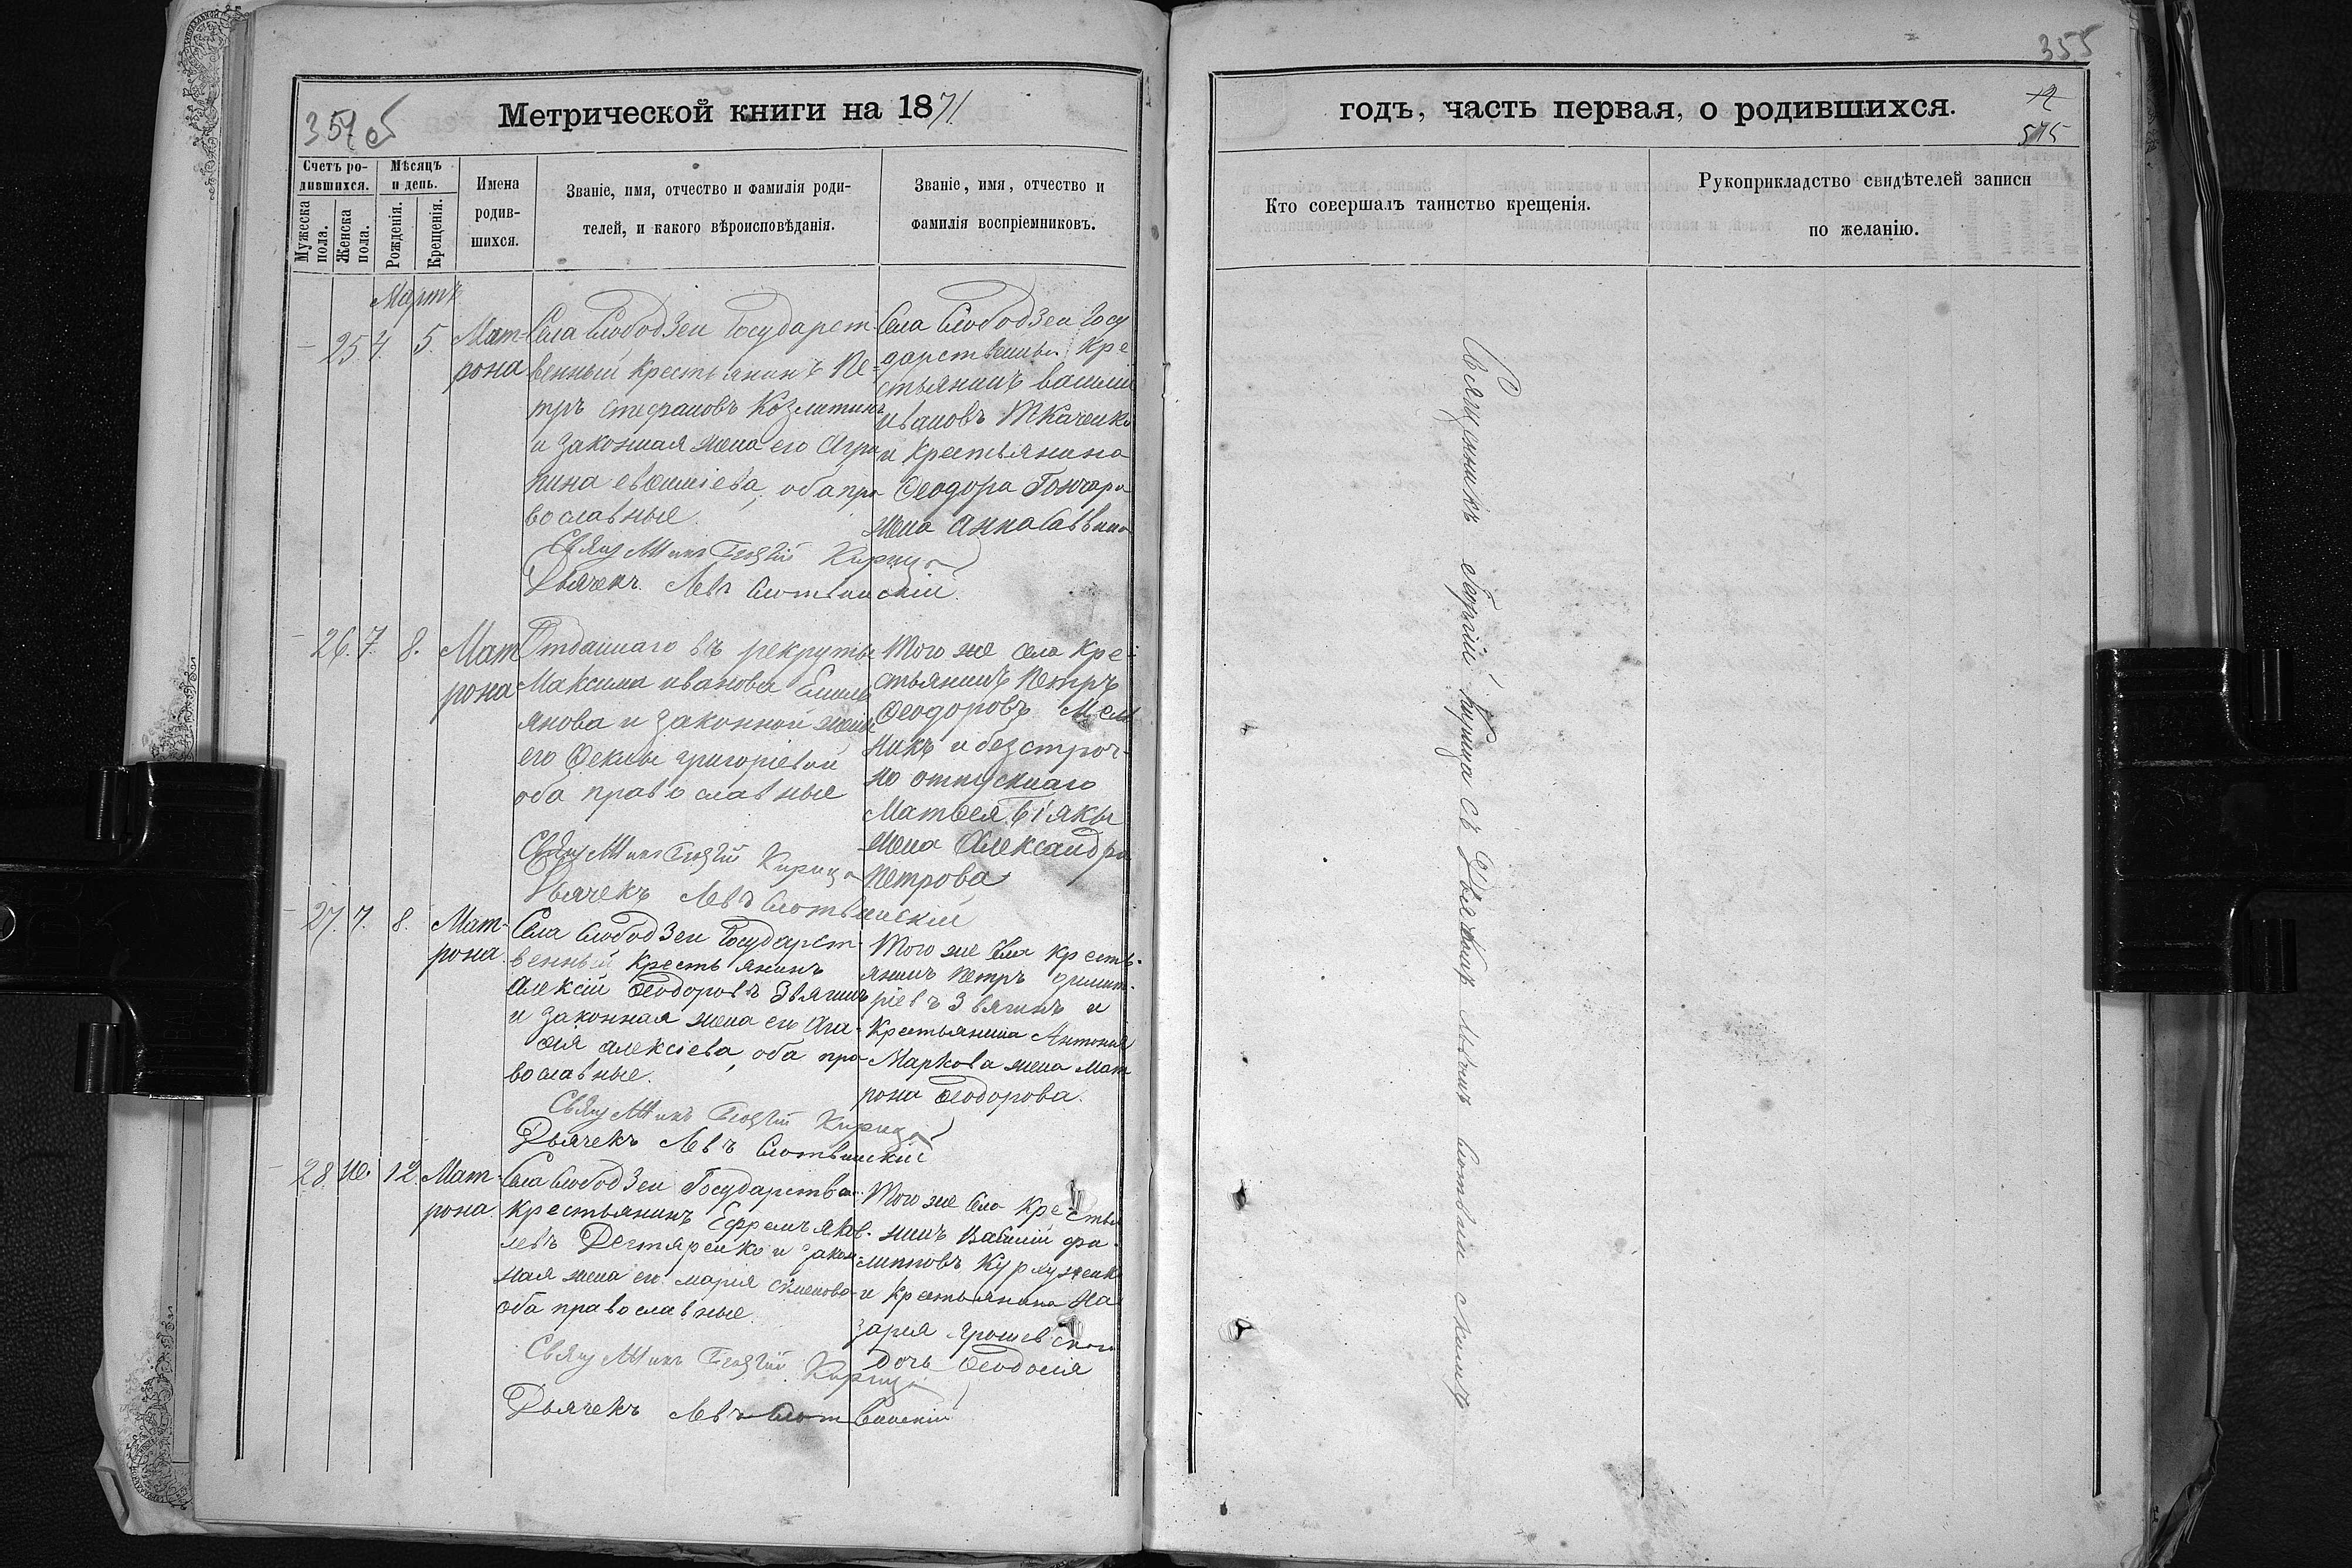 355
Метрической книги на 1871.
годъ, часть первая, о родившихся.
Счетъ родившихся.
Мужеска пола.
Женска пола.
Мѣсяцъ и день.
Рожденія.
Крещенія.
Имена родив-
шихся.
Званіе, имя, отчество и фамилія роди-
телей, и какого вѣроисповѣданія.
Званіе, имя, отчество и
фамилія воспріемниковъ.
Кто совершалъ таинство крещенія.
Рукоприкладство свидѣтелей записи
по желанію.
Мартъ
25. 4. 5. Мат-
рона
Села Слободзеи Государст
венный крестьянинъ Пе-
тръ Стефановъ Козлитинъ
и законная жена его Агри
пина Евѳиміева, оба пра
вославные.
Священникъ Георгій Кирица
Дьячекъ Левъ Слотвинскій.
Села Слободзеи Госу
дарственный Кре
стьянинъ Василій
Ивановъ Ткаченко
и крестьянина
Ѳеодора Гончара
жена Анна Саввина
26. 7. 8. Мат
рона
Отданнаго въ рекруты
Максима Иванова Емиль
янова и законной жены
его Ѳеклы Григоріевой
оба православные
Священникъ Георгій Кирица
Дьячекъ Левъ Слотвинскій
Того же села кре-
стьянинъ Петръ
Ѳеодоровъ Мель
никъ и безсроч-
но отпускнаго
Матѳея
жена Александра
Петрова
27. 7. 8. Мат-
рона.
Села Слободзеи Государст-
венный крестьянинъ
Алексій Ѳеодоровъ Звягинъ
и законная жена его Ага-
ѳія Алексіева, оба пра
вославные.
Священникъ Георгій Кирица
Дьячекъ Левъ Слотвинскій
Того же села кресть-
янинъ Петръ Димит-
ріевъ Звягинъ и
Крестьянина Антонія
Маркова жена Мат
рона Ѳеодорова.
28. 10. 12. Мат-
рона.
Села Слободзеи Государствен.
крестьянинъ Ефремъ Яков-
левъ Дегтяренко и закон-
ная жена его Марія Симеонова
оба православные.
Священникъ Георгій Кирица
Дьячекъ Левъ Слотвинскій
Того же села Крестья
нинъ Василій Фи-
липповъ
и крестьянина На
зарія Грошевскаго
дочь Ѳеодосія
Священникъ Георгій Кирица съ Дьячкомъ Львомъ Слотвинскимъ